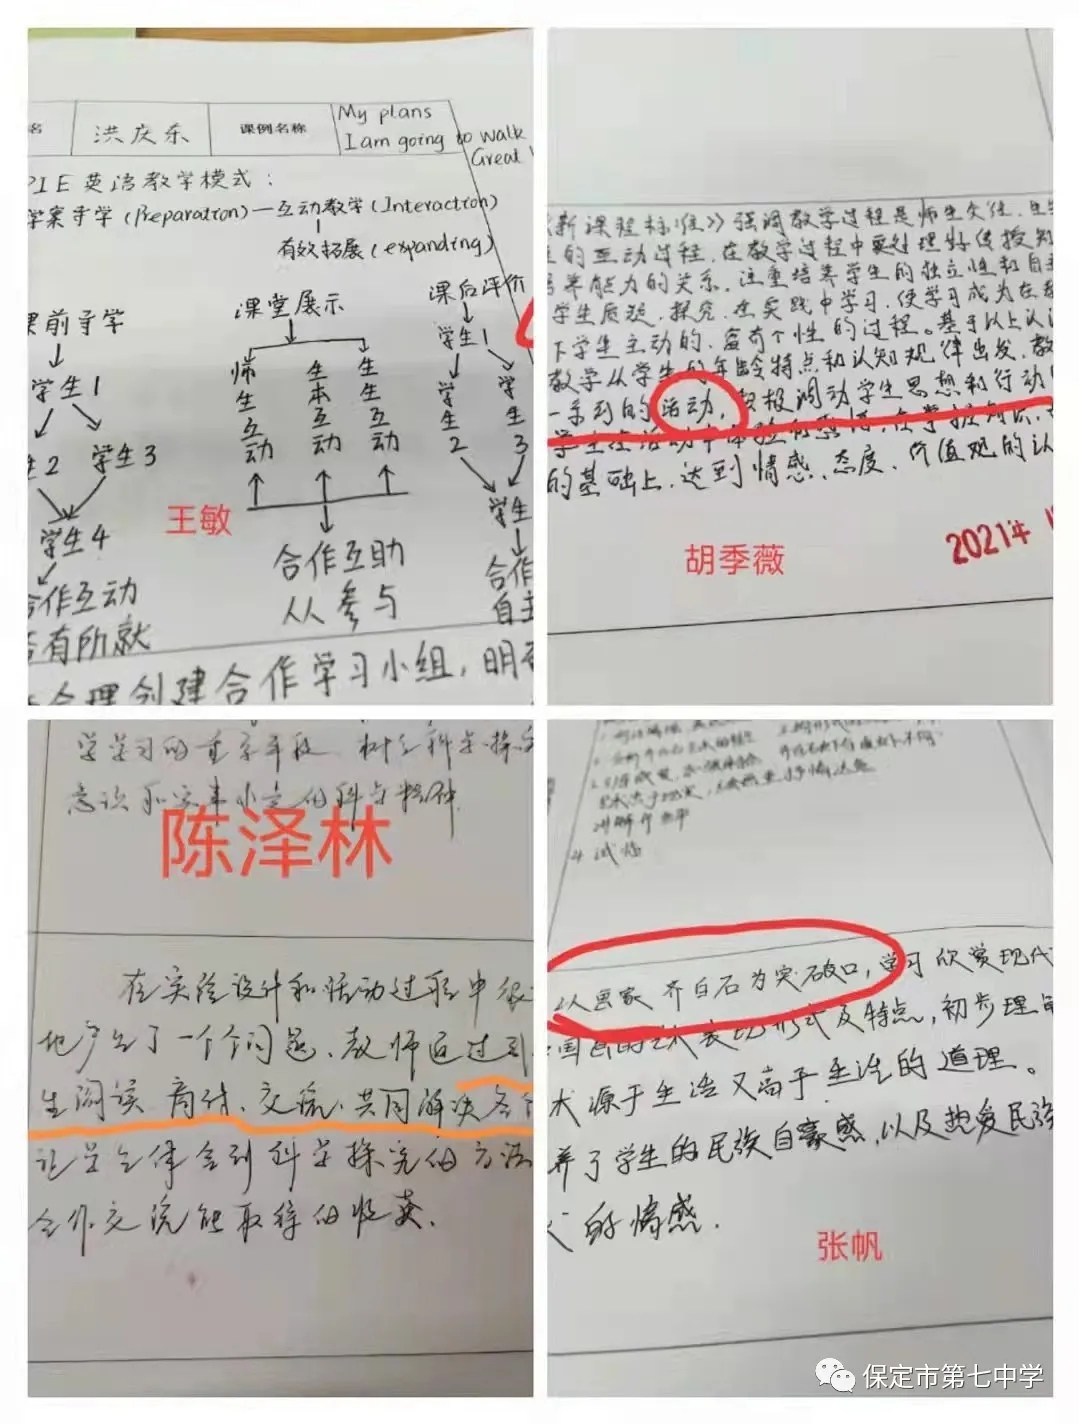 名 洪庆东 课例名称 My plans
I am going to walk
Great
PIE英语教学模式：
学案导学(Preparation)—互动教学(Interaction)
有效拓展(expanding)
课前导学 课堂展示 课后评价
学生1 师生互动 生本互动 生生互动 学生1
生2 学生3 学生2 学生3
学生4 学生
合作互动 合作互助 合作
有所就 人人参与 自主
合理创建合作学习小组，明确
王敏
新课程标准》强调教学过程是师生交往、生生
的互动过程，在教学过程中要处理好传授知
培养能力的关系，注重培养学生的独立性和自主
学生质疑、探究，在实践中学习，使学习成为在教
下学生主动的、富有个性的过程。基于以上认识
教学从学生的年龄特点和认知规律出发，教
一系列的活动，积极调动学生思想和行动
学生在活动中体验和感悟，在掌握知识、
的基础上，达到情感、态度、价值观的认
胡季薇
2021年 1
学学习的重要手段，树立科学探究
意识和实事求是的科学精神。
陈泽林
在实验设计和活动过程中很
地产生了一个个问题，教师通过引
生阅读、商讨、交流，共同解决各个
让学生体会到科学探究的方法
合作交流能取得的收获。
4. 试练
以画家齐白石为突破口，学习欣赏现代
中国画的艺术表现形式及特点，初步理解
术源于生活又高于生活的道理。
养了学生的民族自豪感，以及热爱民族
的情感。
张帆
保定市第七中学